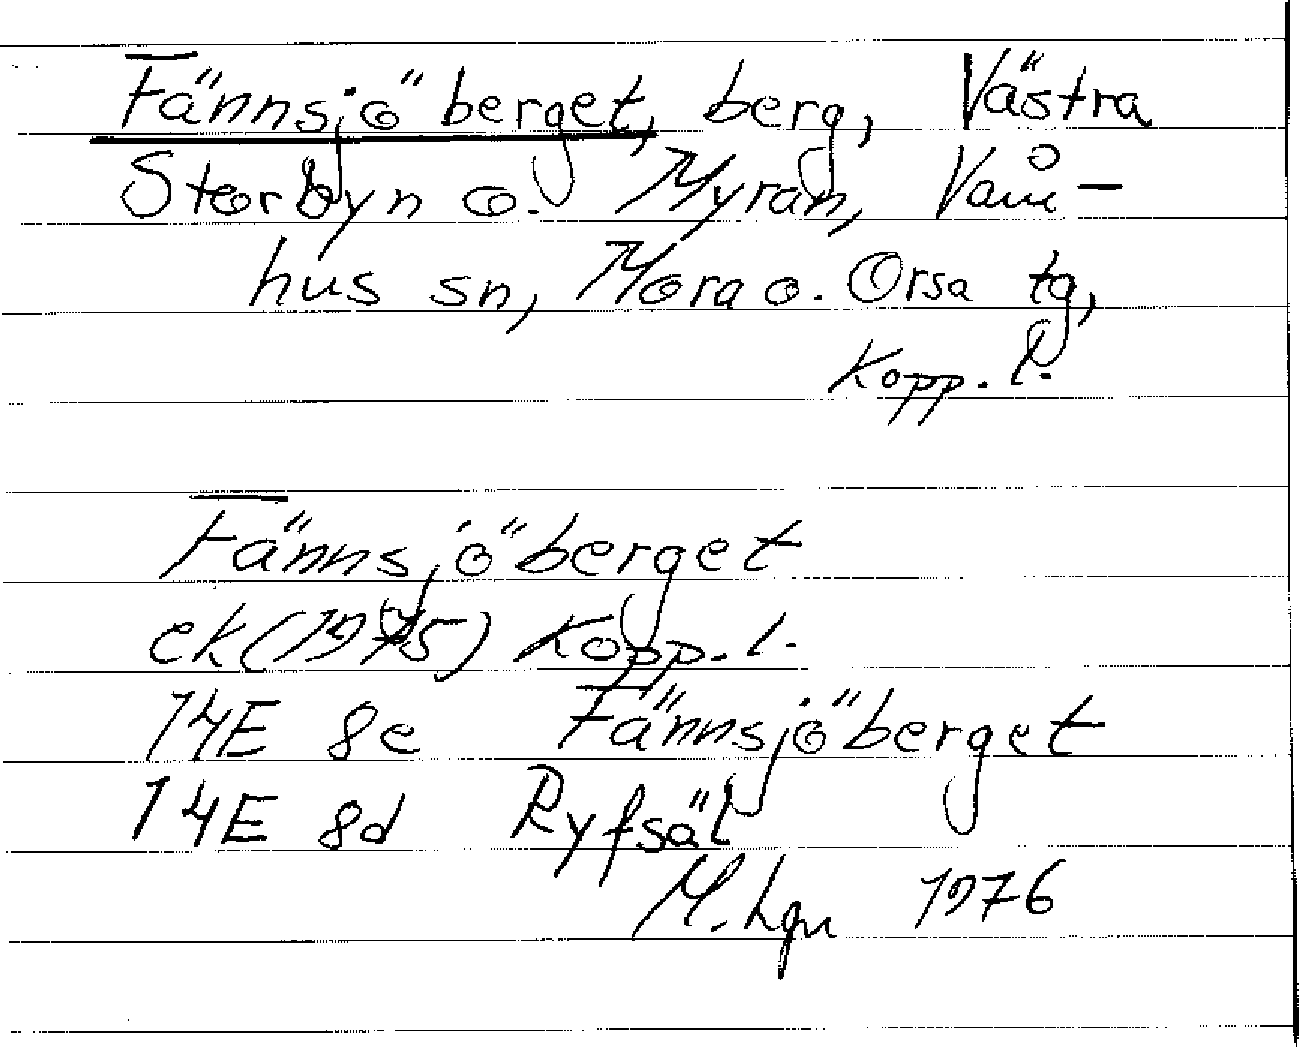 Fännsjöberget, berg, Västra
Storbyn o. Myran, Våm-
hus sn, Mora o. Orsa tg,
Kopp. l.
Fännsjöberget
ek(1975) Kopp. l.
14E 8e Fännsjöberget
14E 8d Ryfsät
M. Lgn 1976